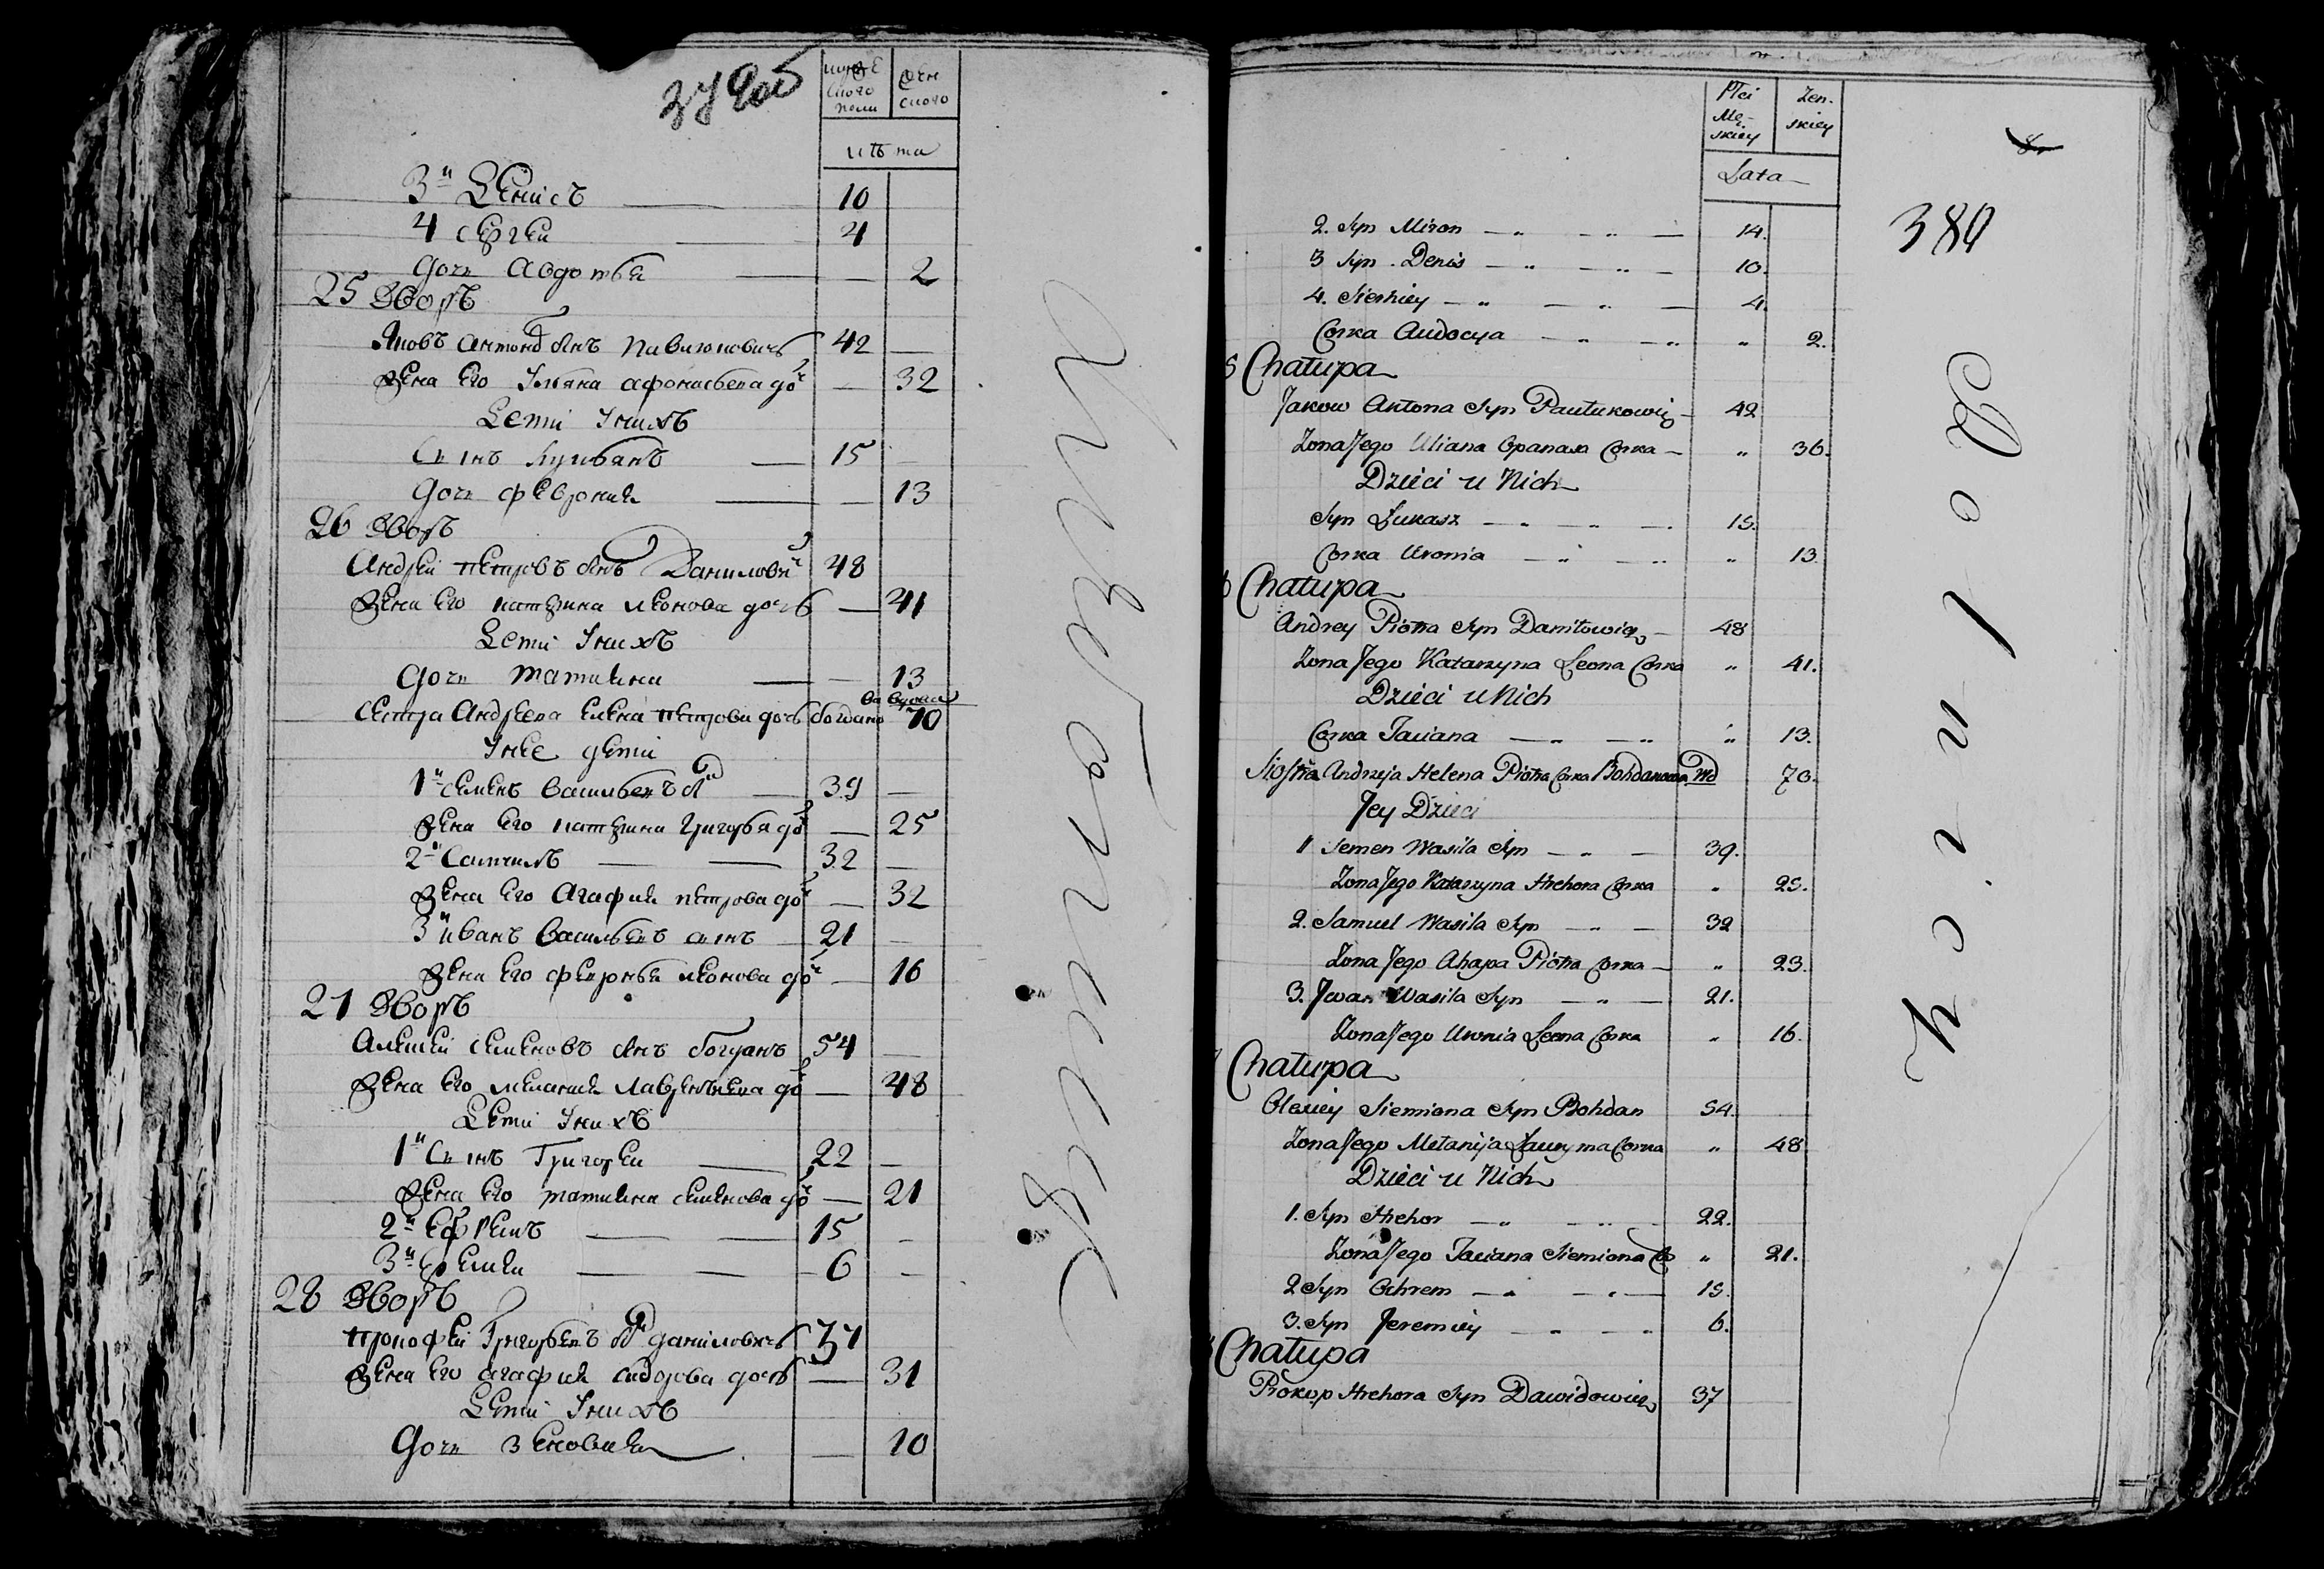 379 об
мужескаго полу
женскаго
лѣта
3й Денисъ 10
4 сергей 4
дочь авдотья 2
25 дворъ
Яковъ антоновъ снъ павлюковичъ 42
жена его Ульяна афонасьева доч 32
Дети Унихъ
Сынъ лукьянъ 15
дочь февронiя 13
26 дворъ
Андрей петровъ снъ Даниловичъ 48
жена его катерина леонова дочь 41
Дети Унихъ
дочь татияна 13
сестра Андреева елена петрова дочь богдано вa вдова 70
Унее дети
1й семенъ васильевъ сн 39
жена его катерина григорья доч 25
2й Самуилъ 32
жена его Агафия петрова доч 32
3й иванъ васильевъ сынъ 21
жена его леонова доч 16
27 дворъ
Алексей семеновъ снъ богданъ 54
жена его меланiя лаврентьева доч 48
Дети Унихъ
1й Сынъ Григорей 22
жена его татияна семенова доч 21
2й ефремъ 15
3й еремей 6
28 дворъ
прокофей Григорьевъ сн даниловичъ 37
жена его агафия сидорова дочь 31
Дети Унихъ
дочь зеновия 10
Płci Mę-skiey
Żen-skiey
Lata
8.
380
2. Syn Miron 14.
3 Syn Denis 10.
4. Sierhiey 4.
Corka Audocya " 2.
5 Chałupa
Jakow Antona Syn Paulukowicz 42
Zona Jego Uliana Opanasa Corka " 36.
Dzieci u Nich
Syn Łukasz 15.
Corka Uronia " 13.
6 Chałupa
Andrey Piotra Syn Daniłowicz 48
Zona Jego Katarzyna Leona Corka " 41.
Dzieci u Nich
Corka Taciana " 13.
Siostra Andrzeja Helena Piotra Corka Bohdanowa Wd 70.
Jey Dzieci
1 Semen Wasila Syn 39.
Zona Jego Katarzyna Hrehora Corka " 25.
2. Samuel Wasila Syn 32
Zona Jego Ahapa Piotra Corka " 23.
3. Jwan Wasila Syn 21.
Zona Jego Uronia Leona Corka " 16.
7 Chałupa
Olexiey Siemiona Syn Bohdan 54.
Zona Jego Mełanija Ławryna Corka " 48
Dzieci u Nich
1. Syn Hrehor 22.
Zona Jego Taciana Siemiona Co " 21.
2 Syn Ochrem 15.
3. Syn Jeremiey 6.
8 Chałupa
Prokop Hrehora Syn Dawidowicz 37